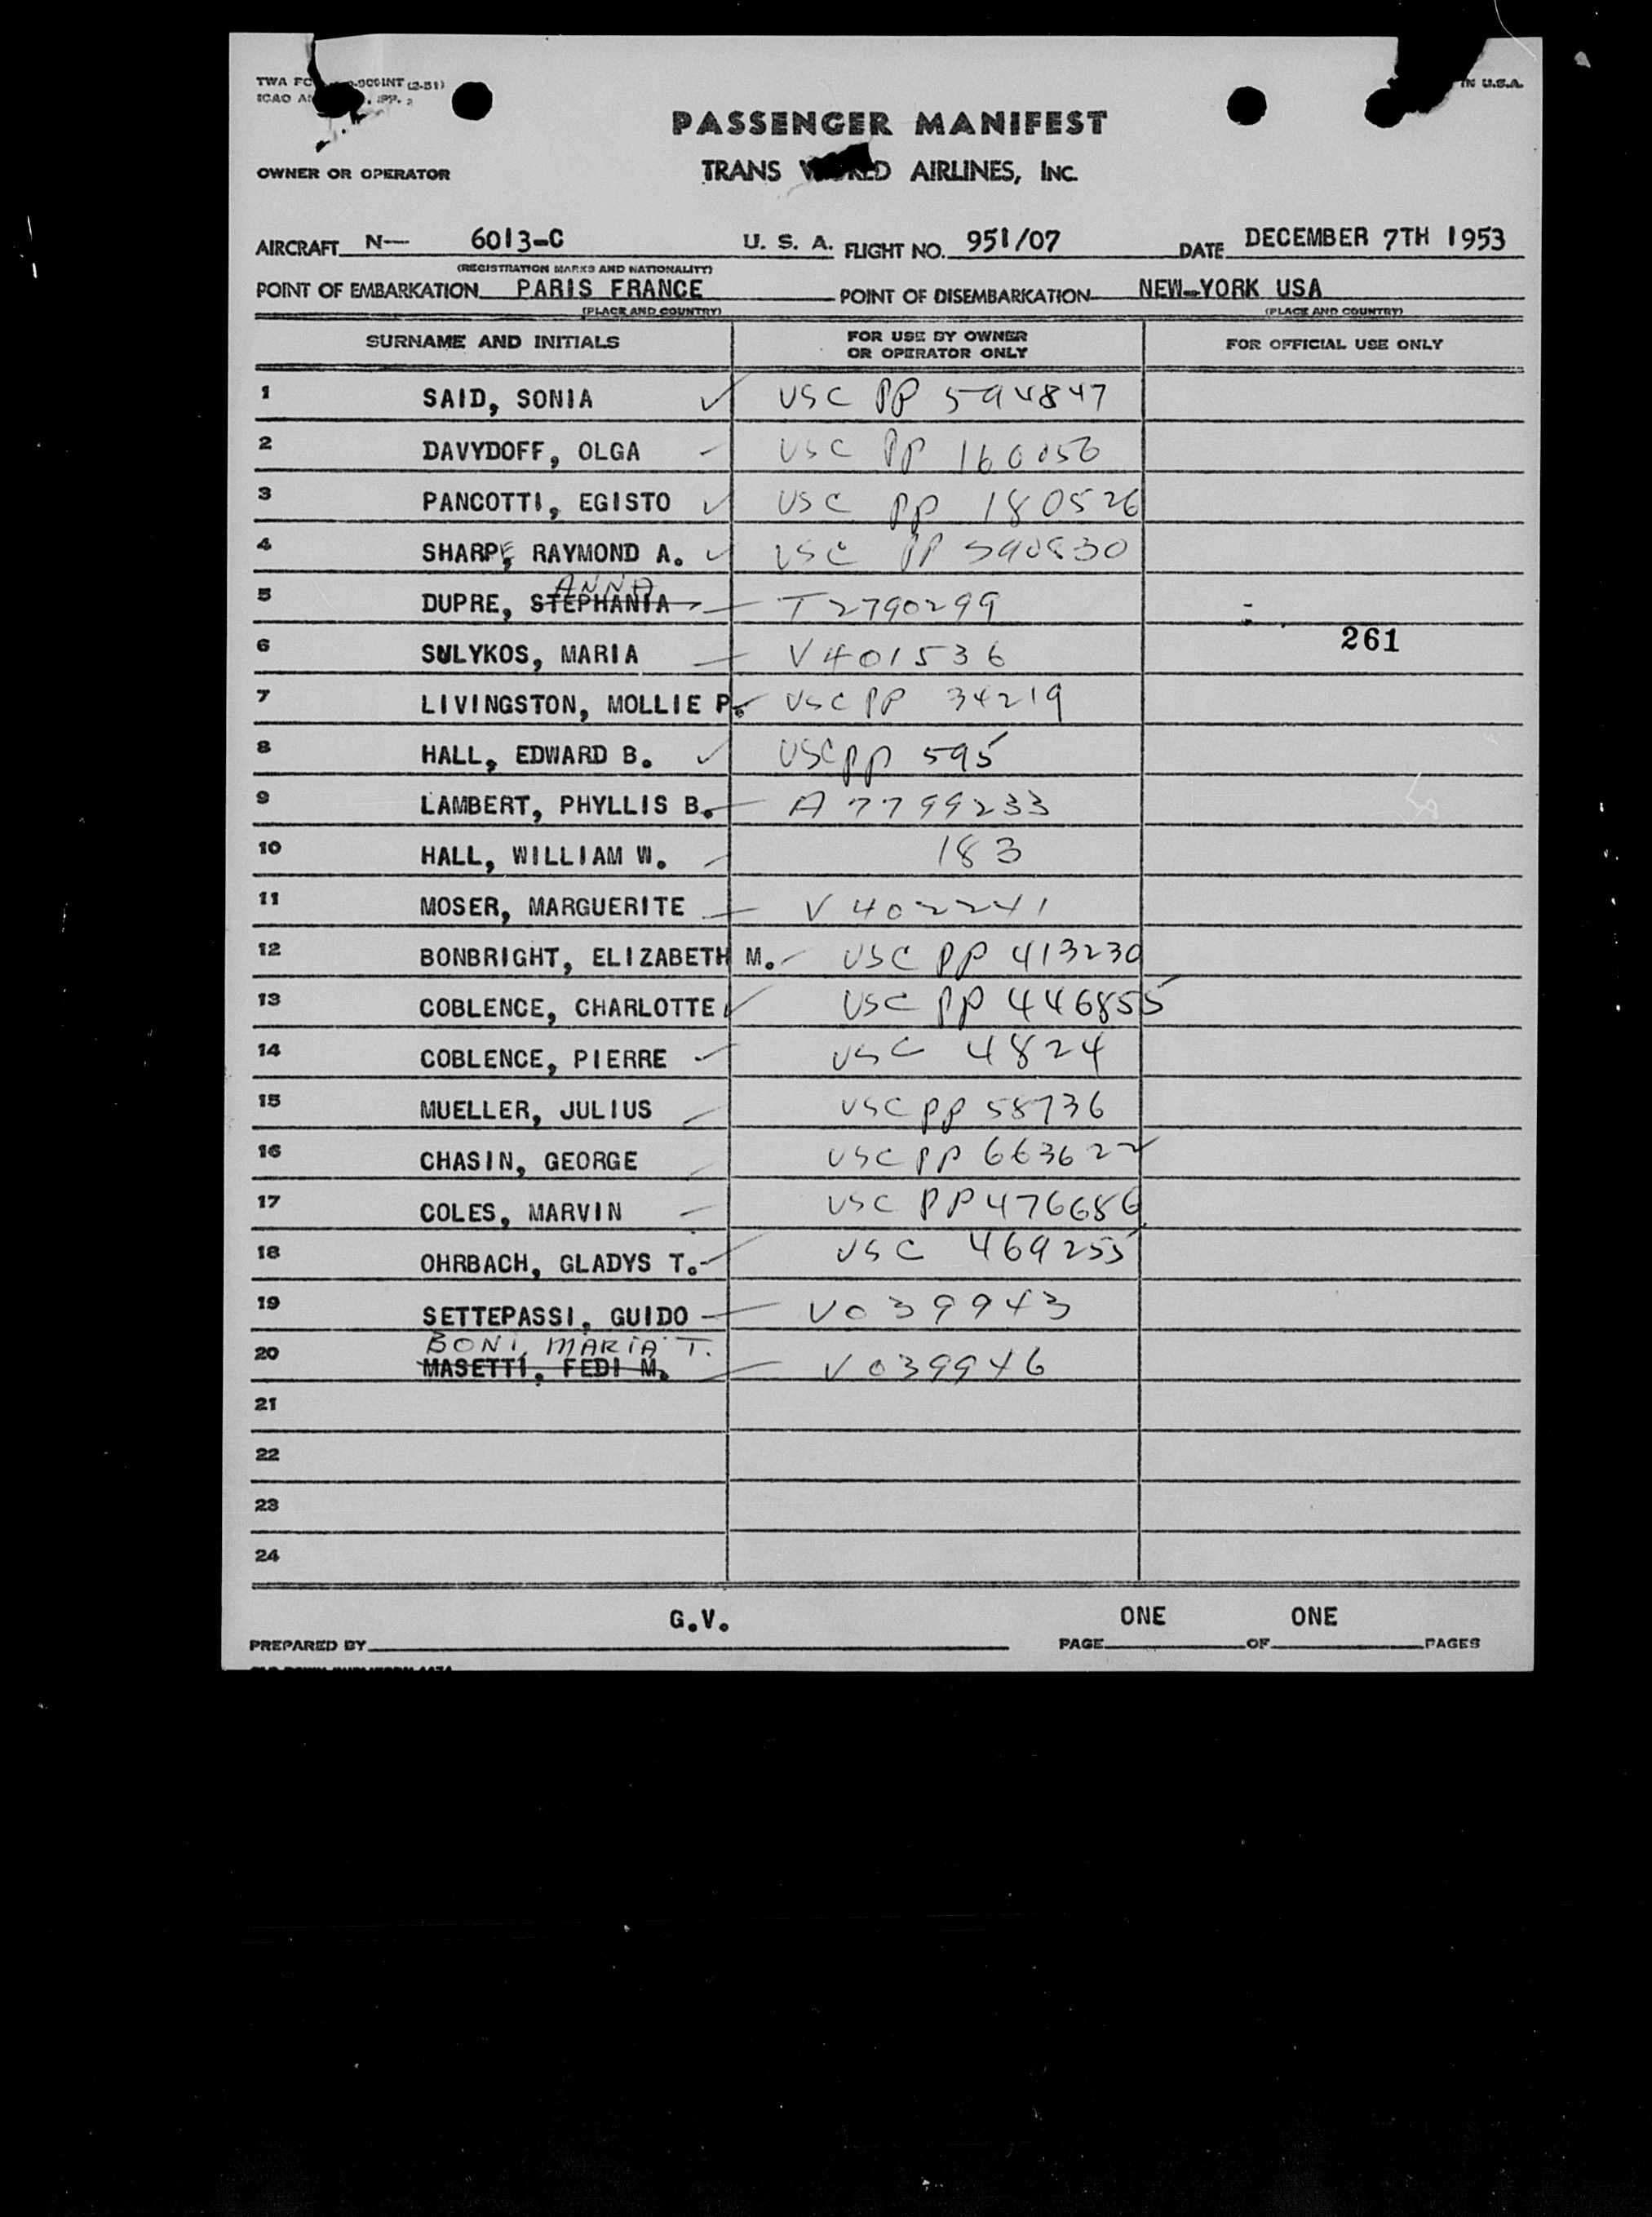 TWA FO
ICAO
IN U.S.A.
PASSENGER MANIFEST
OWNER OR OPERATOR TRANS WORLD AIRLINES, INC.
AIRCRAFT N— 6013-C U. S. A. FLIGHT NO. 951/07 DATE DECEMBER 7TH 1953
(REGISTRATION MARKS AND NATIONALITY)
POINT OF EMBARKATION PARIS FRANCE POINT OF DISEMBARKATION NEW-YORK USA
(PLACE AND COUNTRY) (PLACE AND COUNTRY)
SURNAME AND INITIALS FOR USE BY OWNER OR OPERATOR ONLY FOR OFFICIAL USE ONLY
1 SAID, SONIA ✓ USC PP 594847
2 DAVYDOFF, OLGA USC PP 160056
3 PANCOTTI, EGISTO ✓ USC PP 180526
4 SHARPE, RAYMOND A. ✓ USC PP 590830
ANNA
5 DUPRE, STEPHANIA T2790299
6 SULYKOS, MARIA V401536 261
7 LIVINGSTON, MOLLIE P. USC PP 34219
8 HALL, EDWARD B. ✓ USC PP 595
9 LAMBERT, PHYLLIS B. A 7799233
10 HALL, WILLIAM W. 183
11 MOSER, MARGUERITE V 402241
12 BONBRIGHT, ELIZABETH M. USC PP 413230
13 COBLENCE, CHARLOTTE USC PP 446855
14 COBLENCE, PIERRE USC 4824
15 MUELLER, JULIUS USC PP 58736
16 CHASIN, GEORGE USC PP 663622
17 COLES, MARVIN USC PP 476686
18 OHRBACH, GLADYS T. USC 469255
19 SETTEPASSI, GUIDO V039943
BONI, MARIA T.
20 MASETTI, FEDI M. V039946
21
22
23
24
PREPARED BY G.V. PAGE ONE OF ONE PAGES